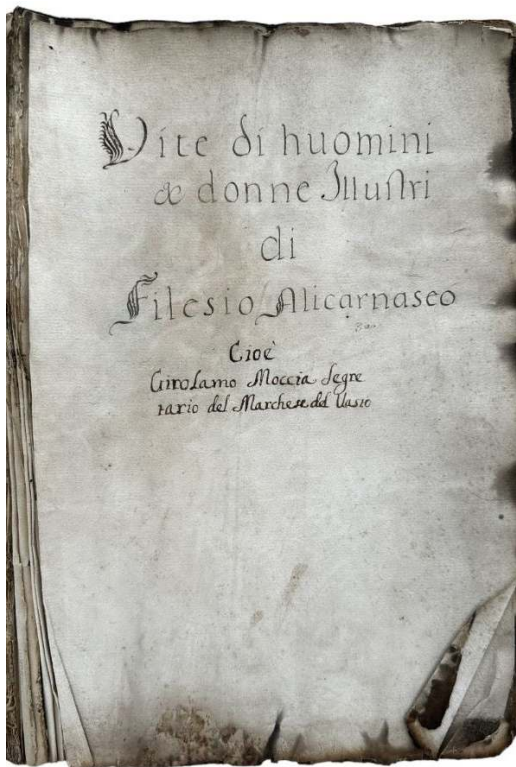 Vite di huomini
& donne Illustri
di
Filesio Alicarnaseo
Cioè
Girolamo Moccia Segre
tario del Marchese del Vasto